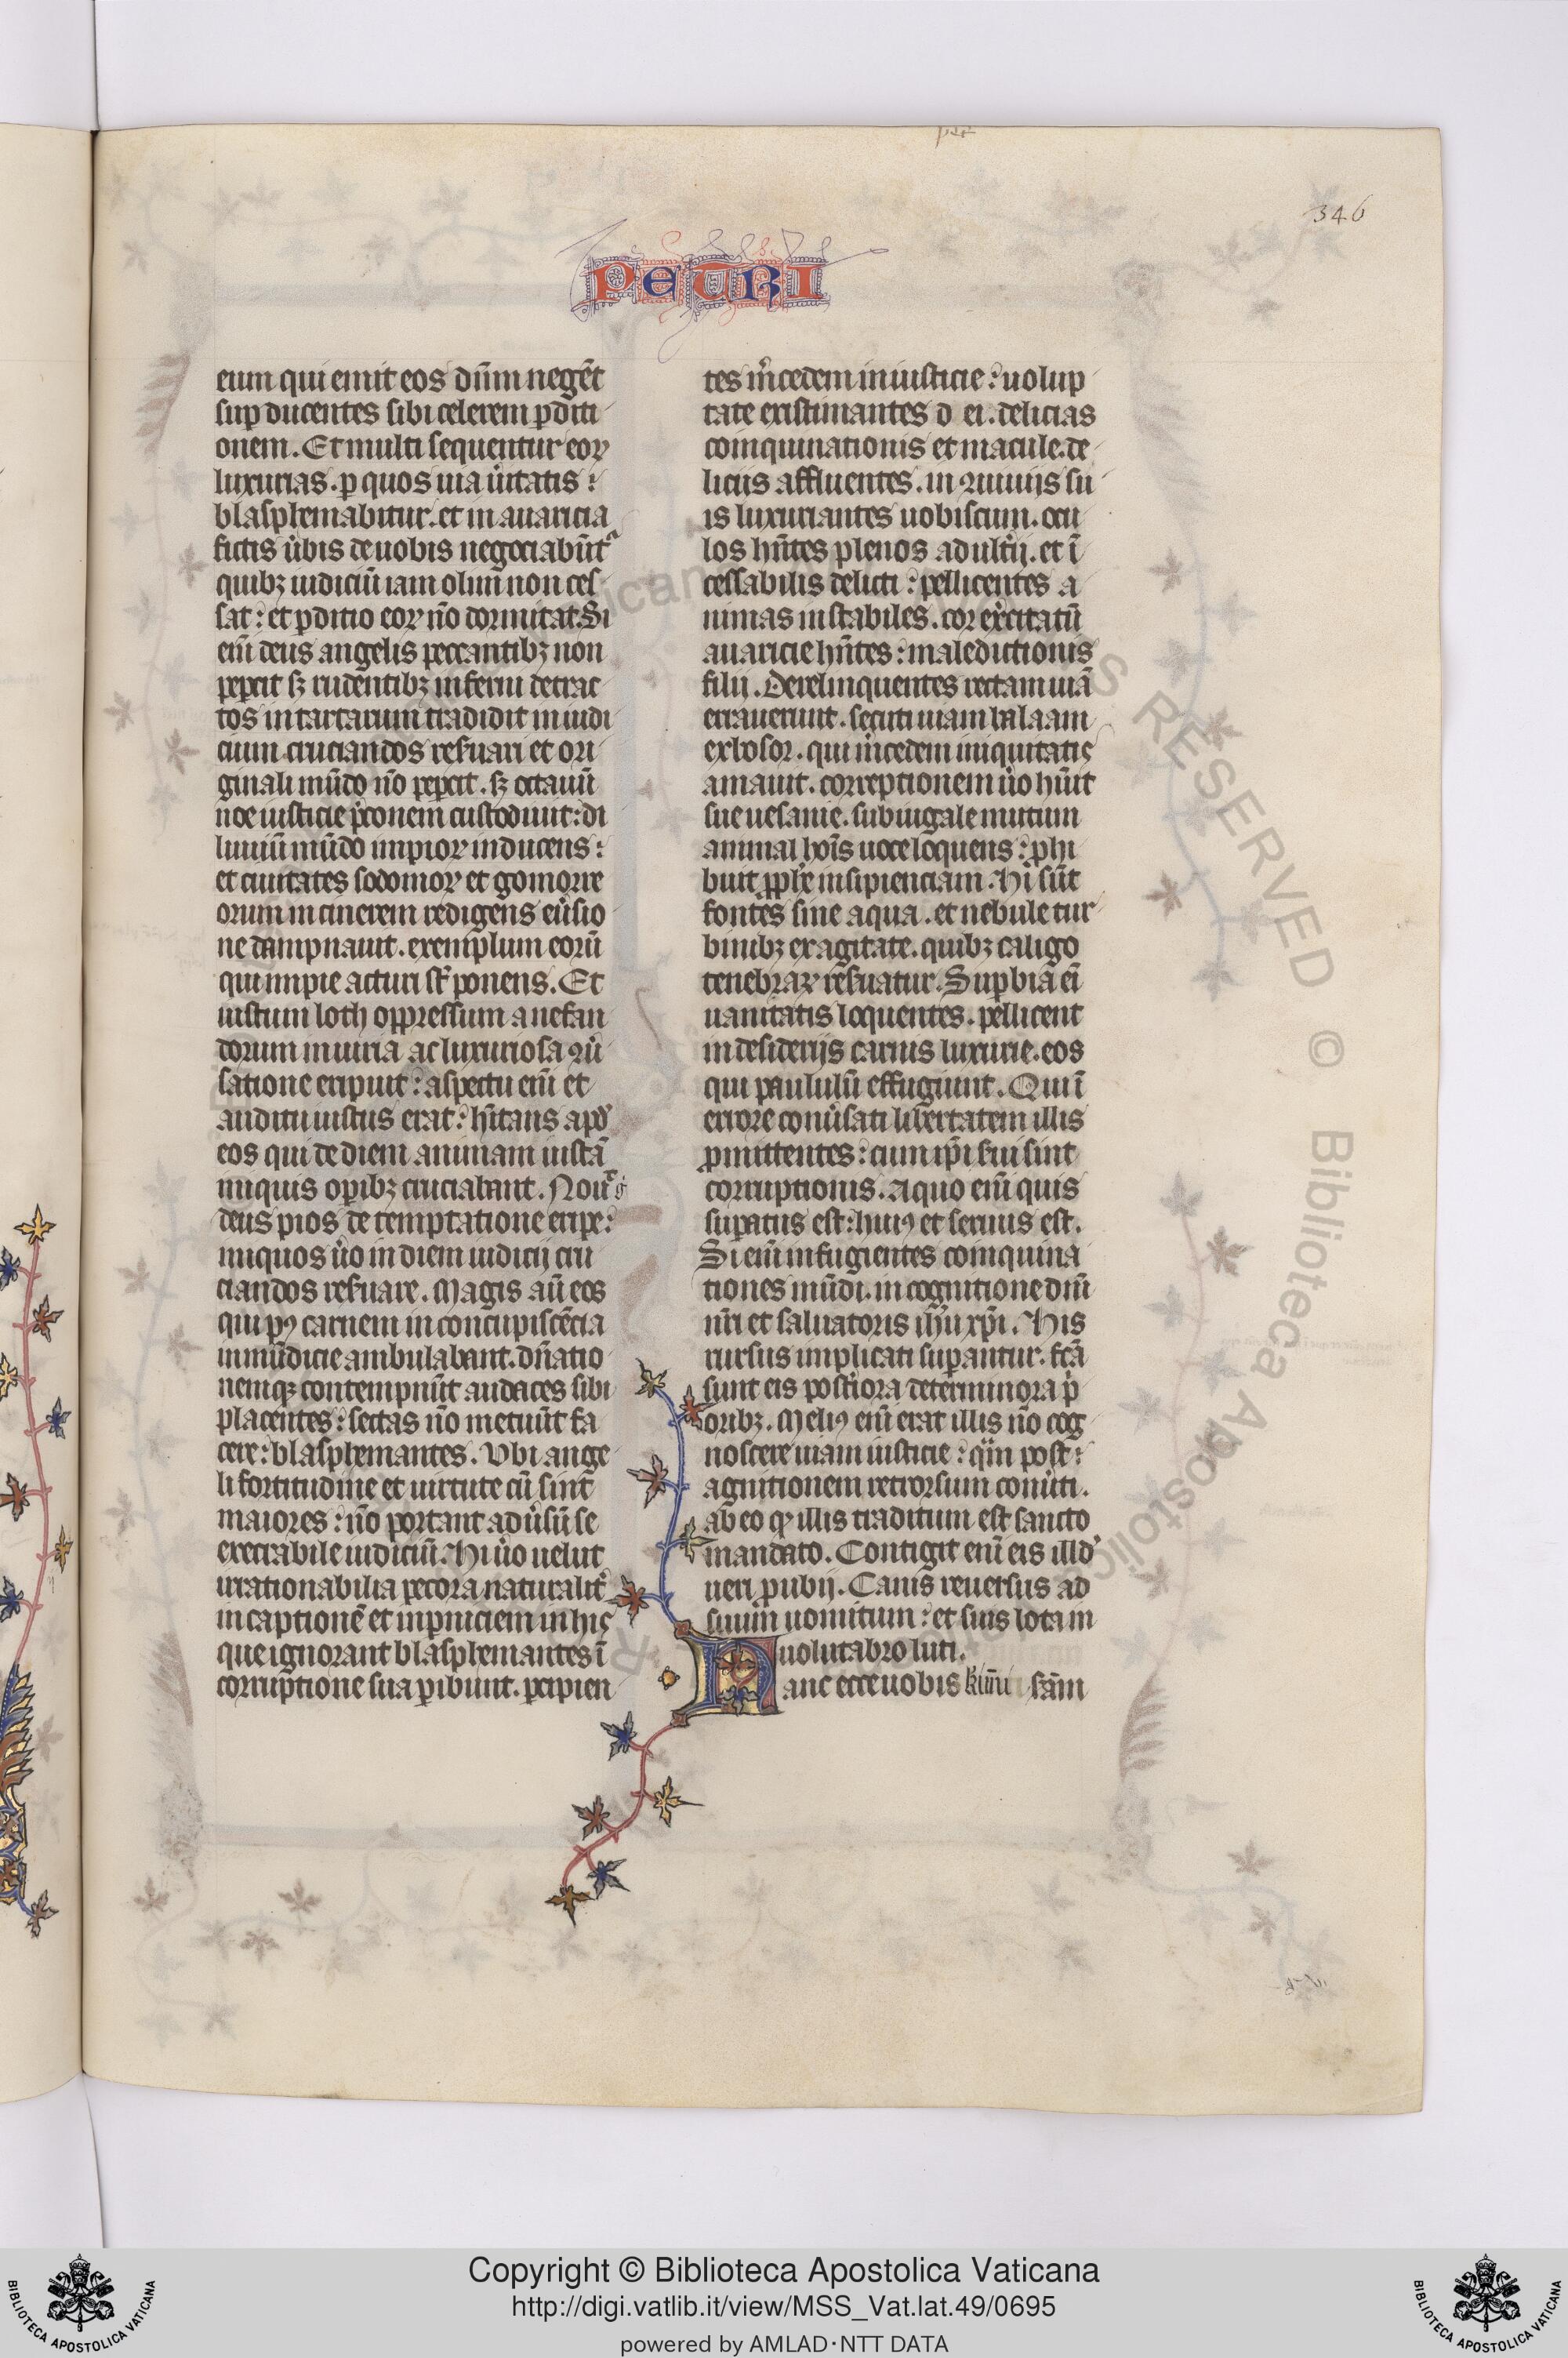 346
PETRI
eum qui emit eos dn̄m negēt
suꝑ ducentes sibi celerem ꝑditi
onem. Et multi sequentur eoꝝ
luxurias. ꝑ quos uia ūitatis :
blasphemabitur. et in auaricia
fictis ūbis de uobis negociabūt᷑
quibꝫ iudiciū iam olim non ces
sat : et ꝑditio eoꝝ nō dormitat. Si
eni̅ deus angelis peccantibꝫ non
peꝑcit sꝫ rudentibꝫ inferni detrac
tos in tartarum tradidit in iudi
cium cruciandos res̄uari et ori
ginali mūdo nō peꝑcit. sꝫ octauū
noe iusticie p̄conem custodiuit : di
luuiū mūdo impioꝝ inducens :
et ciuitates sodomoꝝ et gomorre
orum in cinerem redigens eūsio
ne dampnauit. exemplum eorū
qui impie acturi st̄ ponens. Et
iustum loth oppressum a nefan
dorum iniuria ac luxuriosa ꝯū
satione eripuit : aspectu eni̅ et
auditu iustus erat : hītans apd̓
eos qui de diem animam iustā
iniquis oꝑibꝫ cruciabant. Nou᷑
deus pios de temptatione eripe :
iniquos ūo in diem iudicij cru
ciandos res̄uare. Magis aū eos
qui pꝰ carnem in concupiscēcia
inmūdicie ambulabant. dn̄atio
nemqꝫ contempnūt audaces sibi
placentes : sectas nō metuūt fa
cere : blasphemantes. Vbi ange
li fortitudine et uirtute cū sint
maiores : nō portant adūsū se
execrabile iudiciū. Hi ūo uelut
irrationabilia pecora naturalit̄
in captionē et in ꝑniciem in his
que ignorant blasphemantes ī
corruptione sua ꝑibunt. ꝑcipien
tes m̄cedem iniusticie : uolup
tate existimantes d ei. delicias
coinquinationis et macule. de
liciis affluentes. in ꝯuiuijs su
is luxuriantes uobiscum. ocu
los hn̄tes plenos adult̄ij. et ī
cessabilis delicti : pellicentes a
nimas instabiles. cor ex̄citatū
auaricie hn̄tes : maledictionis
filij. Derelinquentes rectam uiā
errauerunt. secuti uiam balaam
ex bosor. qui m̄cedem iniquitatis
amauit. correptionem ūo hūit
sue uesanie. subiugale mutum
animal hoīs uoce loquens : ꝓhi
buit ꝓph̄e insipienciam. Hi sūt
fontes sine aqua. et nebule tur
binibꝫ exagitate. quibꝫ caligo
tenebraꝝ res̄uatur. Suꝑbia eī
uanitatis loquentes. pellicent
in desiderijs carnis luxurie. eos
qui paululū effugiunt. Qui ī
errore conūsati libertatem illis
ꝓmittentes : cum ip̄i s̄ui sint
corruptionis. A quo eni̅ quis
suꝑatus est : huiꝰ et seruus est.
Si eni̅ infugientes coinquina
tiones mūdi. in cognitione dn̄i
nr̄i et saluatoris ih̄u xp̄i. His
rursus implicati suꝑantur. fc̄a
sunt eis post̄iora deterri̅ora p̓
oribꝫ. Meliꝰ eni̅ erat illis nō cog
noscere uiam iusticie : qͣm post :
agnitionem retrorsum conūti.
ab eo qꝫ illis traditum est sancto
mandato. Contigit eni̅ eis illd̓
ueri ꝓubij. Canis reuersus ad
suum uomitum : et suis lota in
uolutabro luti.
Hanc ecce uobis km̄i sc̄am
Copyright © Biblioteca Apostolica Vaticana
http://digi.vatlib.it/view/MSS_Vat.lat.49/0695
powered by AMLAD·NTT DATA